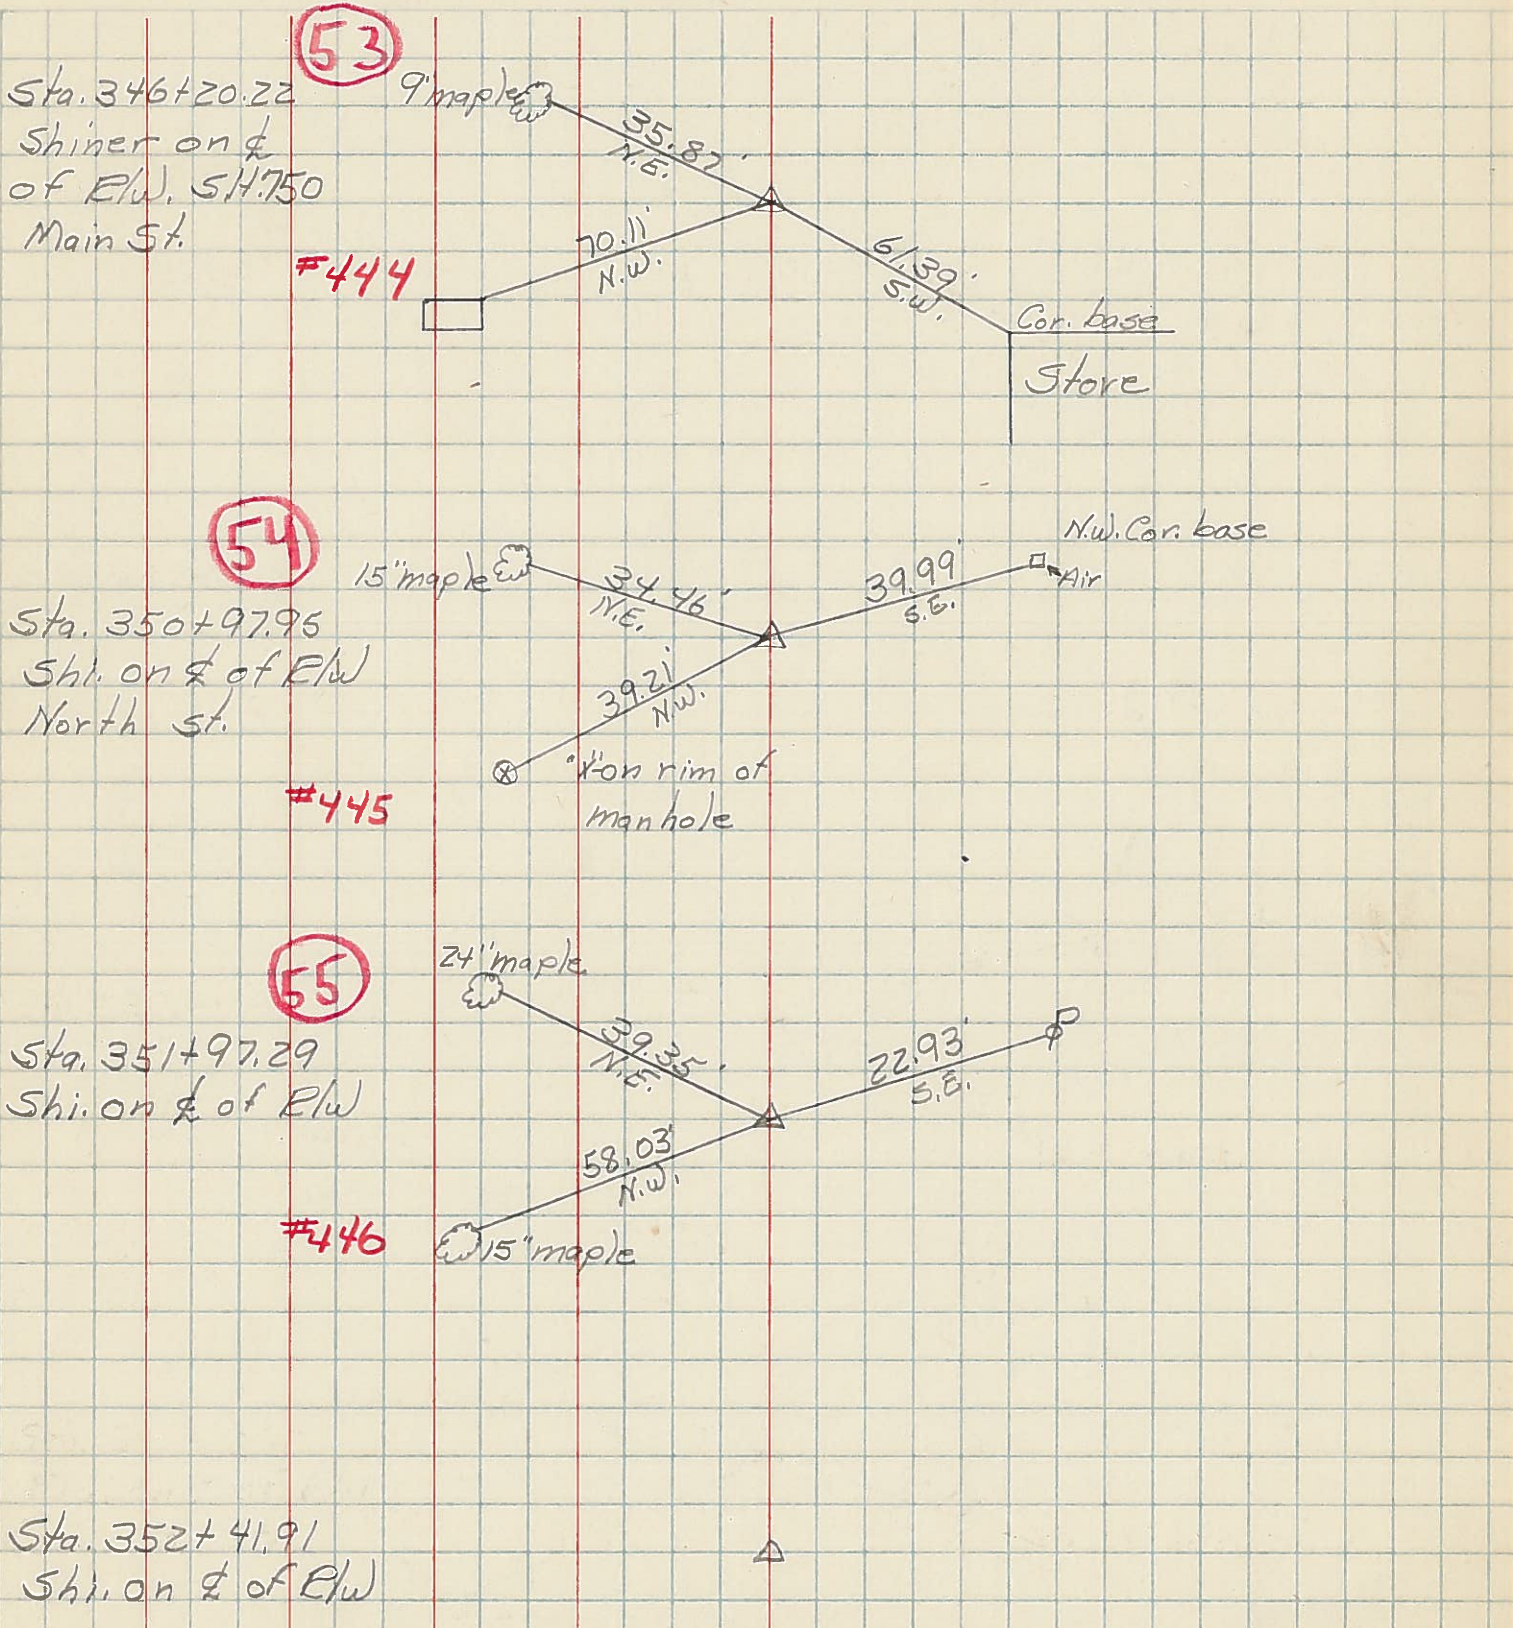 53
Sta. 346+20.22
Shiner on ℄
of P/W. S.H.750
Main St.
#444
9" maple
35.87'
N.E.
70.11'
N.W.
61.39'
S.W.
Cor. base
Store
54
Sta. 350+97.95
Shi. on ℄ of P/W
North St.
#445
15" maple
34.46'
N.E.
39.21'
N.W.
39.99'
S.E.
N.W. Cor. base
Air
"X" on rim of
manhole
55
Sta. 351+97.29
Shi. on ℄ of P/W
#446
24" maple
39.35'
N.E.
58.03'
N.W.
15" maple
22.93'
S.E.
Sta. 352+41.91
Shi. on ℄ of P/W